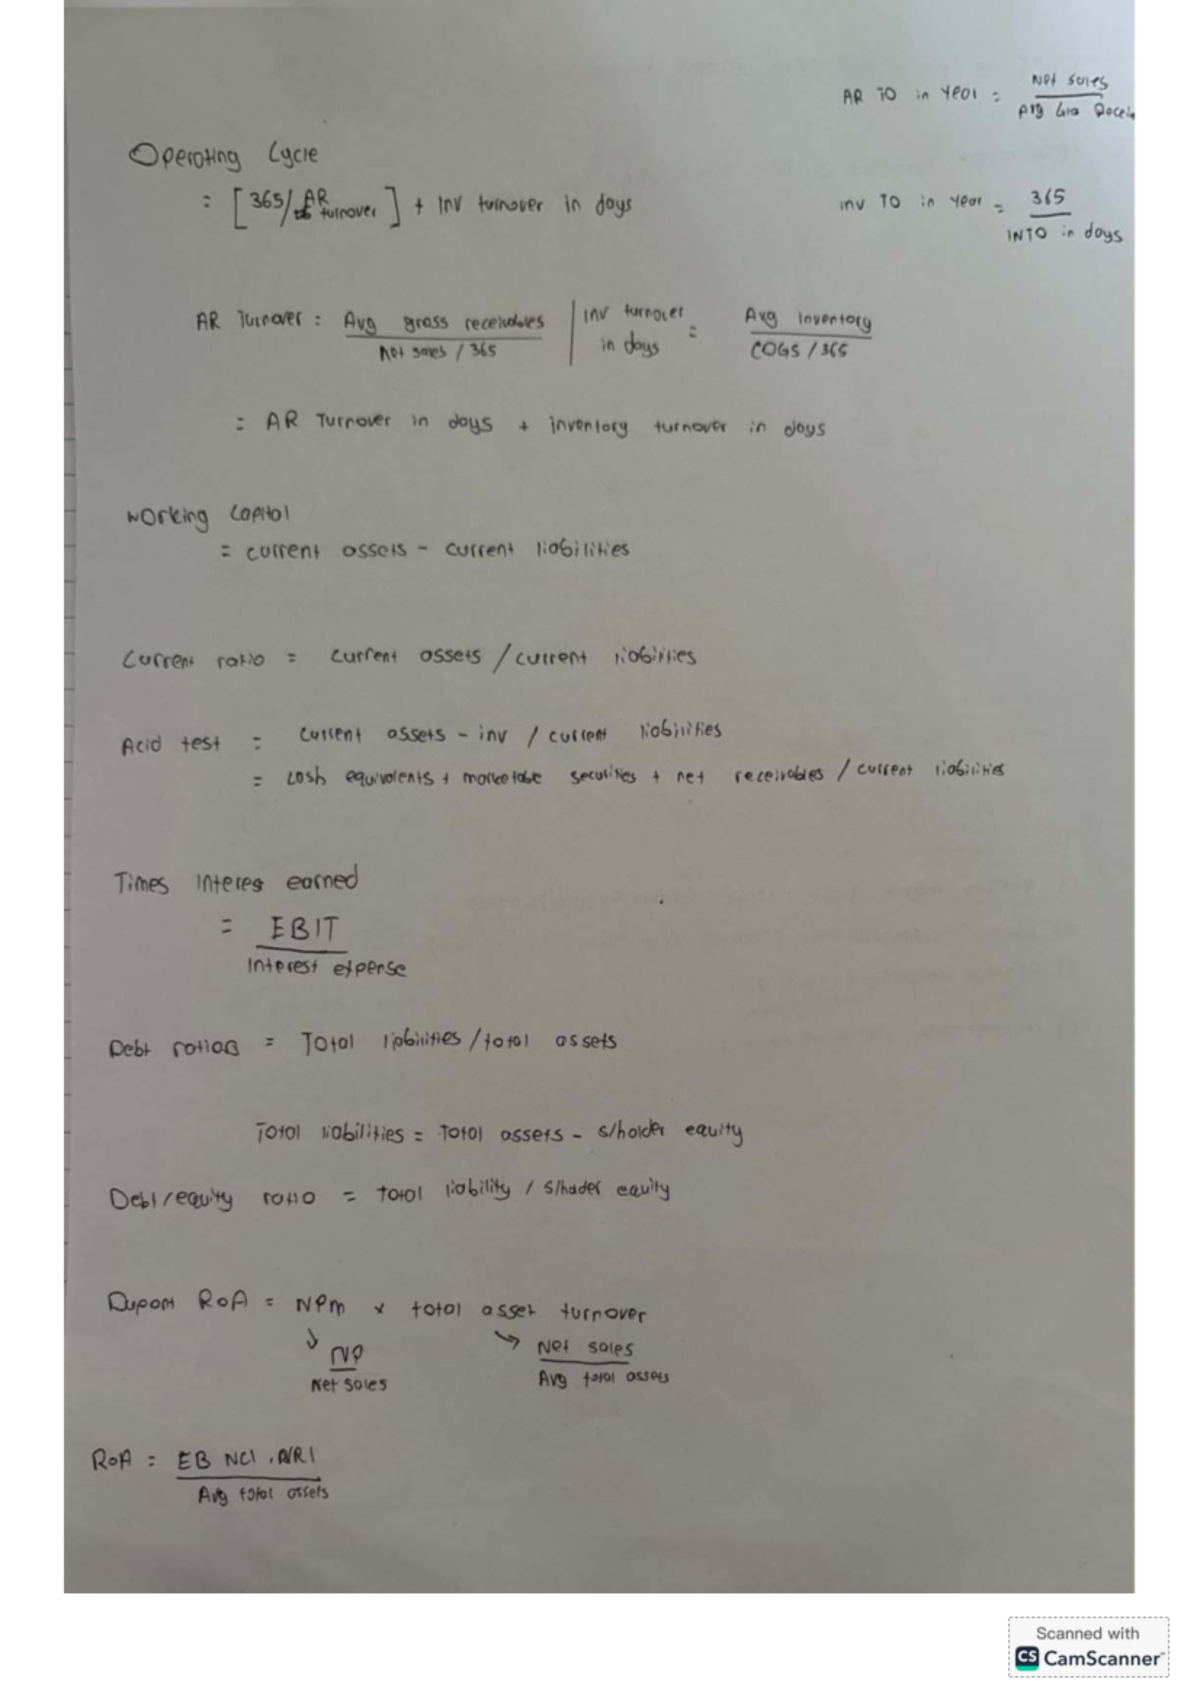 AR TO in year = Net sales / Avg Gro Recei
Operating Cycle
= [365/AR turnover] + Inv turnover in days
inv TO in year = 365 / INTO in days
AR Turnover = Avg gross receivables / Net sales / 365 | inv turnover in days = Avg inventory / COGS / 365
= AR Turnover in days + inventory turnover in days
Working Capital
= current assets - current liabilities
Current ratio = current assets / current liabilities
Acid test = current assets - inv / current liabilities
= cash equivalents + marketabe securities + net receivables / current liabilities
Times Interes earned
= EBIT
Interest expense
Debt = Total liabilities / total assets
Total liabilities = Total assets - s/holder equity
Debt/equity ratio = total liability / s/hader equity
Dupont RoA = NPM x total asset turnover
↓ NP ↘ Net sales
Net sales Avg total assets
RoA = EB NCI . NRI
Avg total assets
Scanned with
CS CamScanner